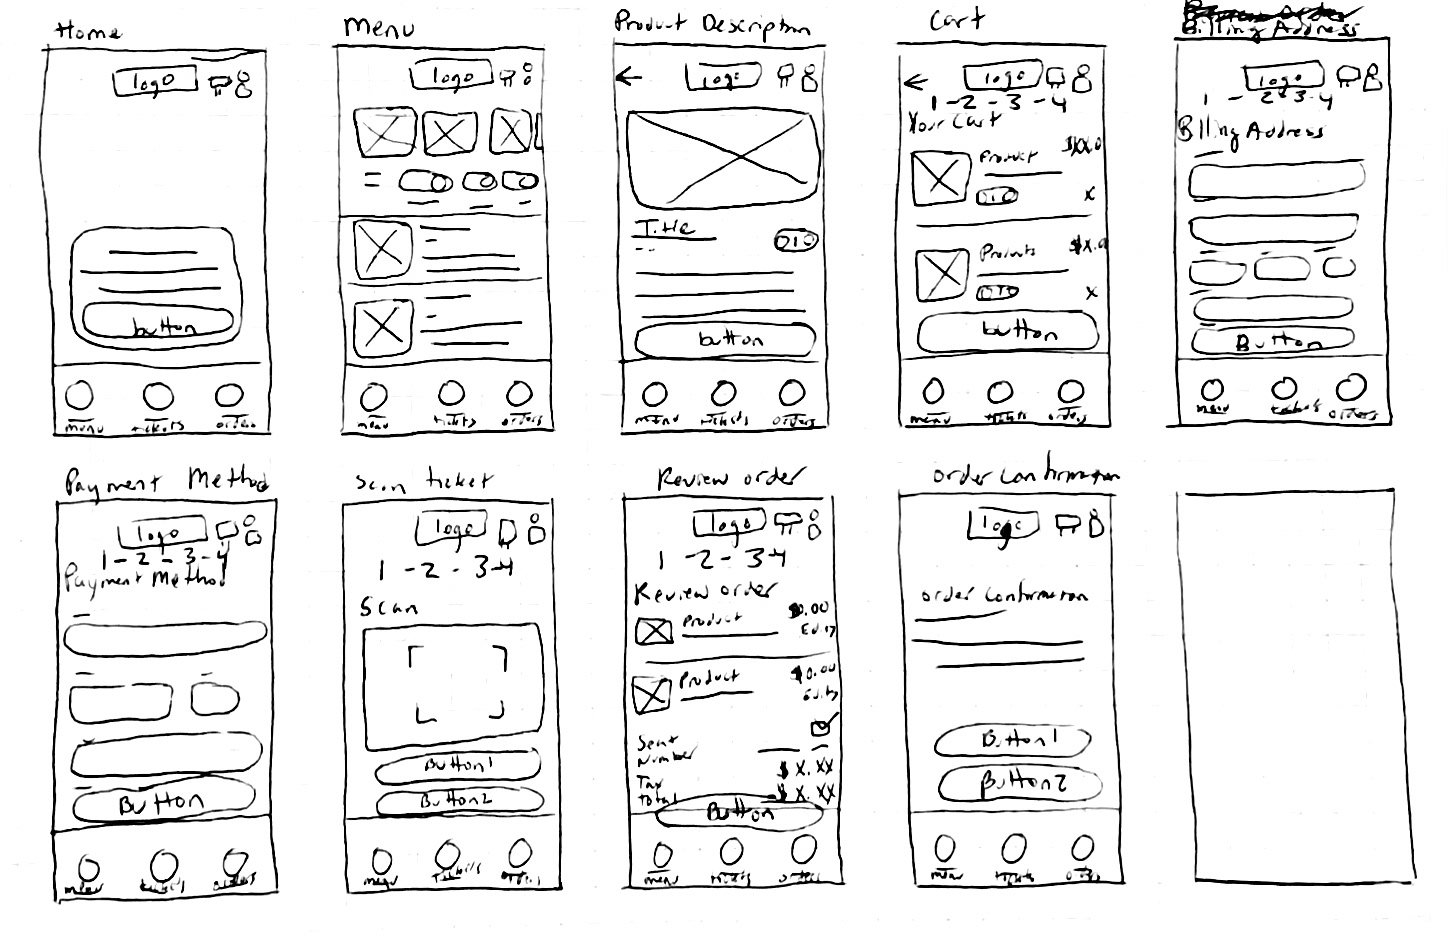 Home
logo
button
menu
tickets
orders
Menu
logo
menu
tickets
orders
Product Description
logo
Title
button
menu
tickets
orders
Cart
logo
1 - 2 - 3 - 4
Your Cart
Product
X
Products
X
button
menu
tickets
orders
Billing Address
logo
1 - 2 - 3 - 4
Billing Address
Button
menu
tickets
orders
Payment Method
logo
1 - 2 - 3 - 4
Payment Method
Button
menu
tickets
orders
Scan ticket
logo
1 - 2 - 3 - 4
Scan
Button1
Button2
menu
tickets
orders
Review order
logo
1 - 2 - 3 - 4
Review order
Product $0.00
Product $0.00
Seat
Number
Tax $ X.XX
Total $ X.XX
Button
menu
tickets
orders
Order Confirmation
logo
Order Confirmation
Button1
Button2
menu
tickets
orders